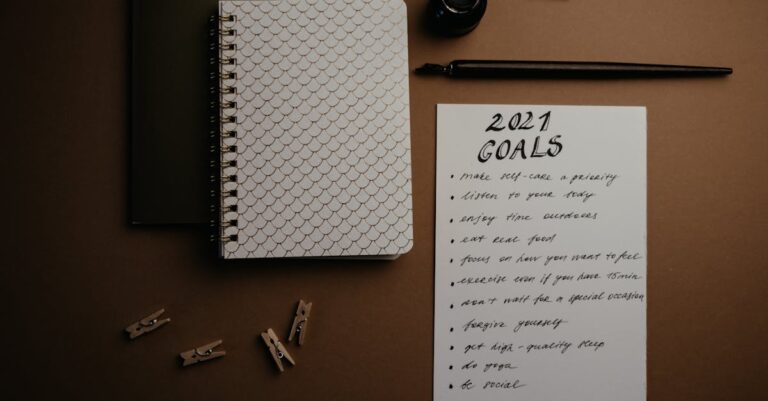 2021
GOALS
• make self-care a priority
• listen to your body
• enjoy time outdoors
• eat real food
• focus on how you want to feel
• exercise even if you have 15 min
• don't wait for a special occasion
• forgive yourself
• get high-quality sleep
• do yoga
• be social